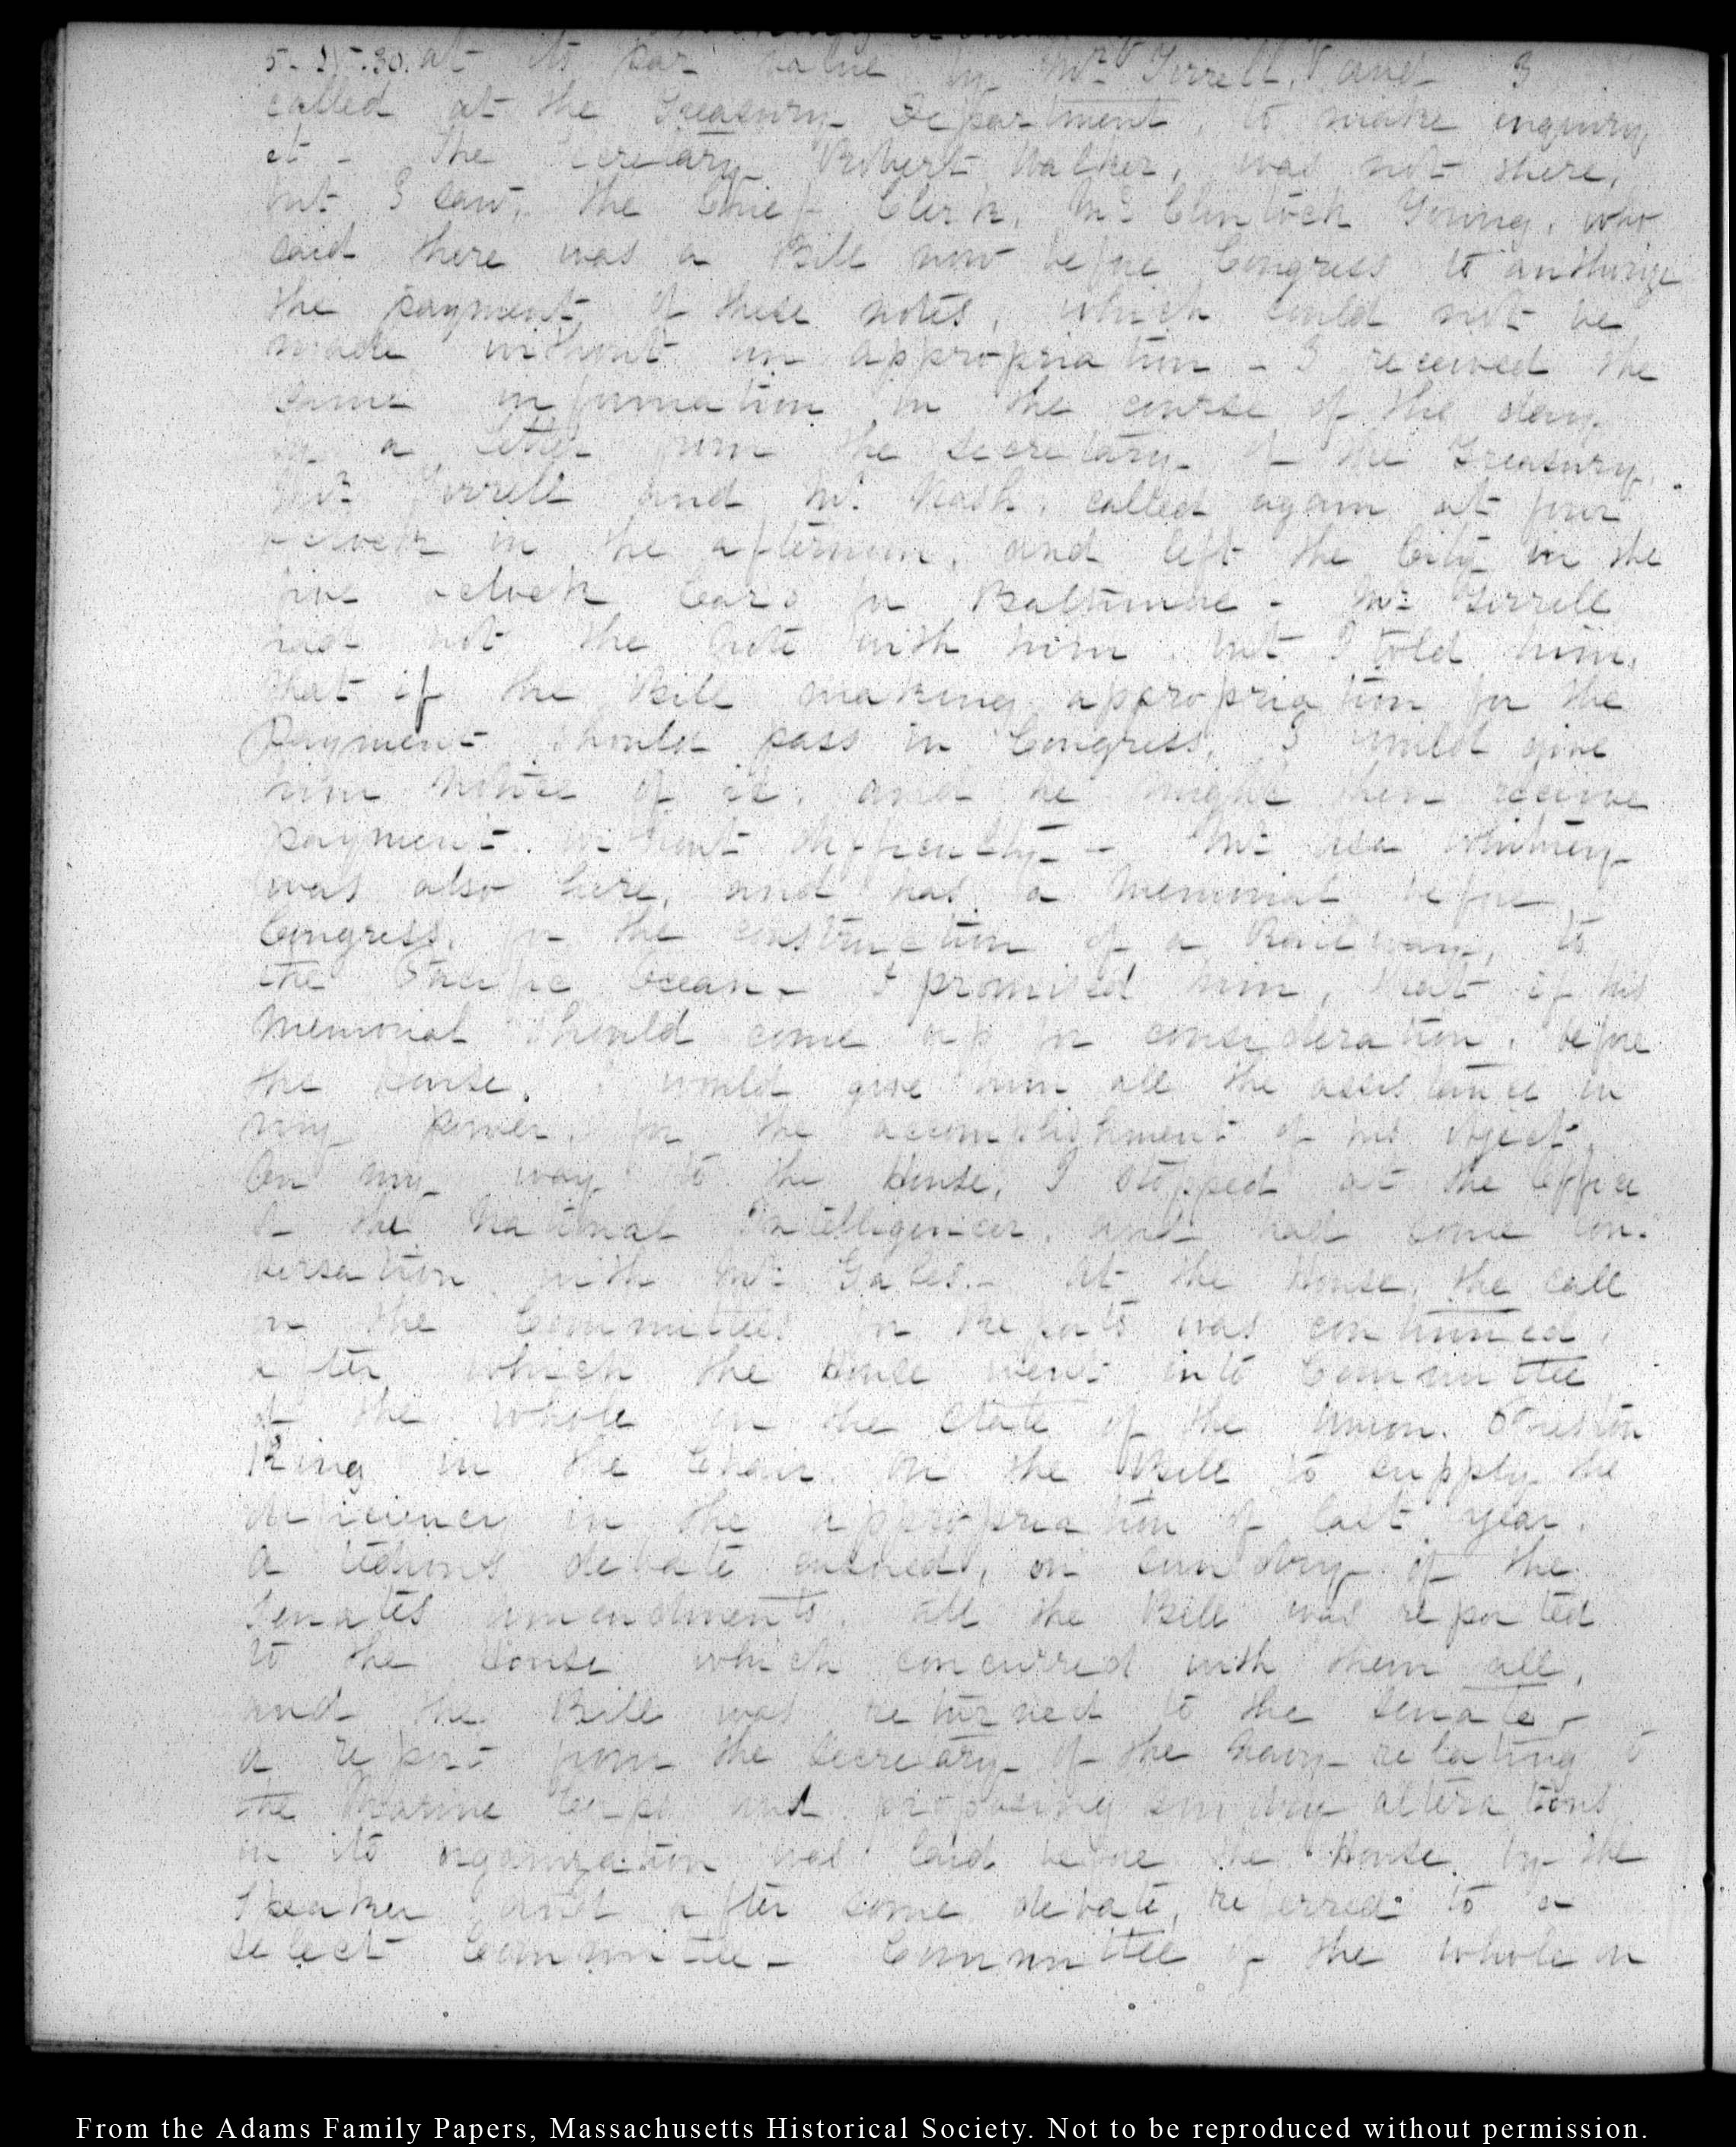 5-IV-30. at its par value by Mr Tirrell, and I
called at the Treasury Department, to make inquiry
it – The Secretary Robert Walker, was not there,
but I saw, the Chief Clerk, Mc Clintock Young, who
said there was a Bill now before Congress to authorize
the payment of these notes, which could not be
made without an appropriation – I received the
same information in the course of the day
by a letter from the Secretary of the Treasury,
Mr Tirrell and Mr Nash, called again at four
o'clock in the afternoon, and left the City in the
five o'clock Cars for Baltimore – Mr Tirrell
had not the note with him, but I told him,
that if the Bill making appropriation for the
payment should pass in Congress, I would give
him notice of it, and he might then receive
payment, without difficulty – Mr Asa Whitney
was also here, and has a memorial before
Congress, for the construction of a Railway, to
the Pacific Ocean – I promised him, that if his
memorial should come up for consideration, before
the House, I would give him all the assistance in
my power, for the accomplishment of his object,
On my way to the House, I stopped at the Office
of the National Intelligencer, and had some con-
versation with Mr Gales. – At the House, the call
on the Committees for Reports was continued,
after which the House went into Committee
of the whole on the state of the Union, Preston
King in the Chair, on the Bill to supply the
deficiency in the appropriation of last year,
A tedious debate ensued, on sundry of the
Senate's amendments, all the Bill was reported
to the House which concurred with them all,
and the Bill was returned to the Senate –
a report from the Secretary of the Navy relating to
the Marine Corps and proposing sundry alterations
in its organization was laid before the House by the
Speaker and after some debate, referred to a
select Committee – Committee of the whole on
From the Adams Family Papers, Massachusetts Historical Society. Not to be reproduced without permission.